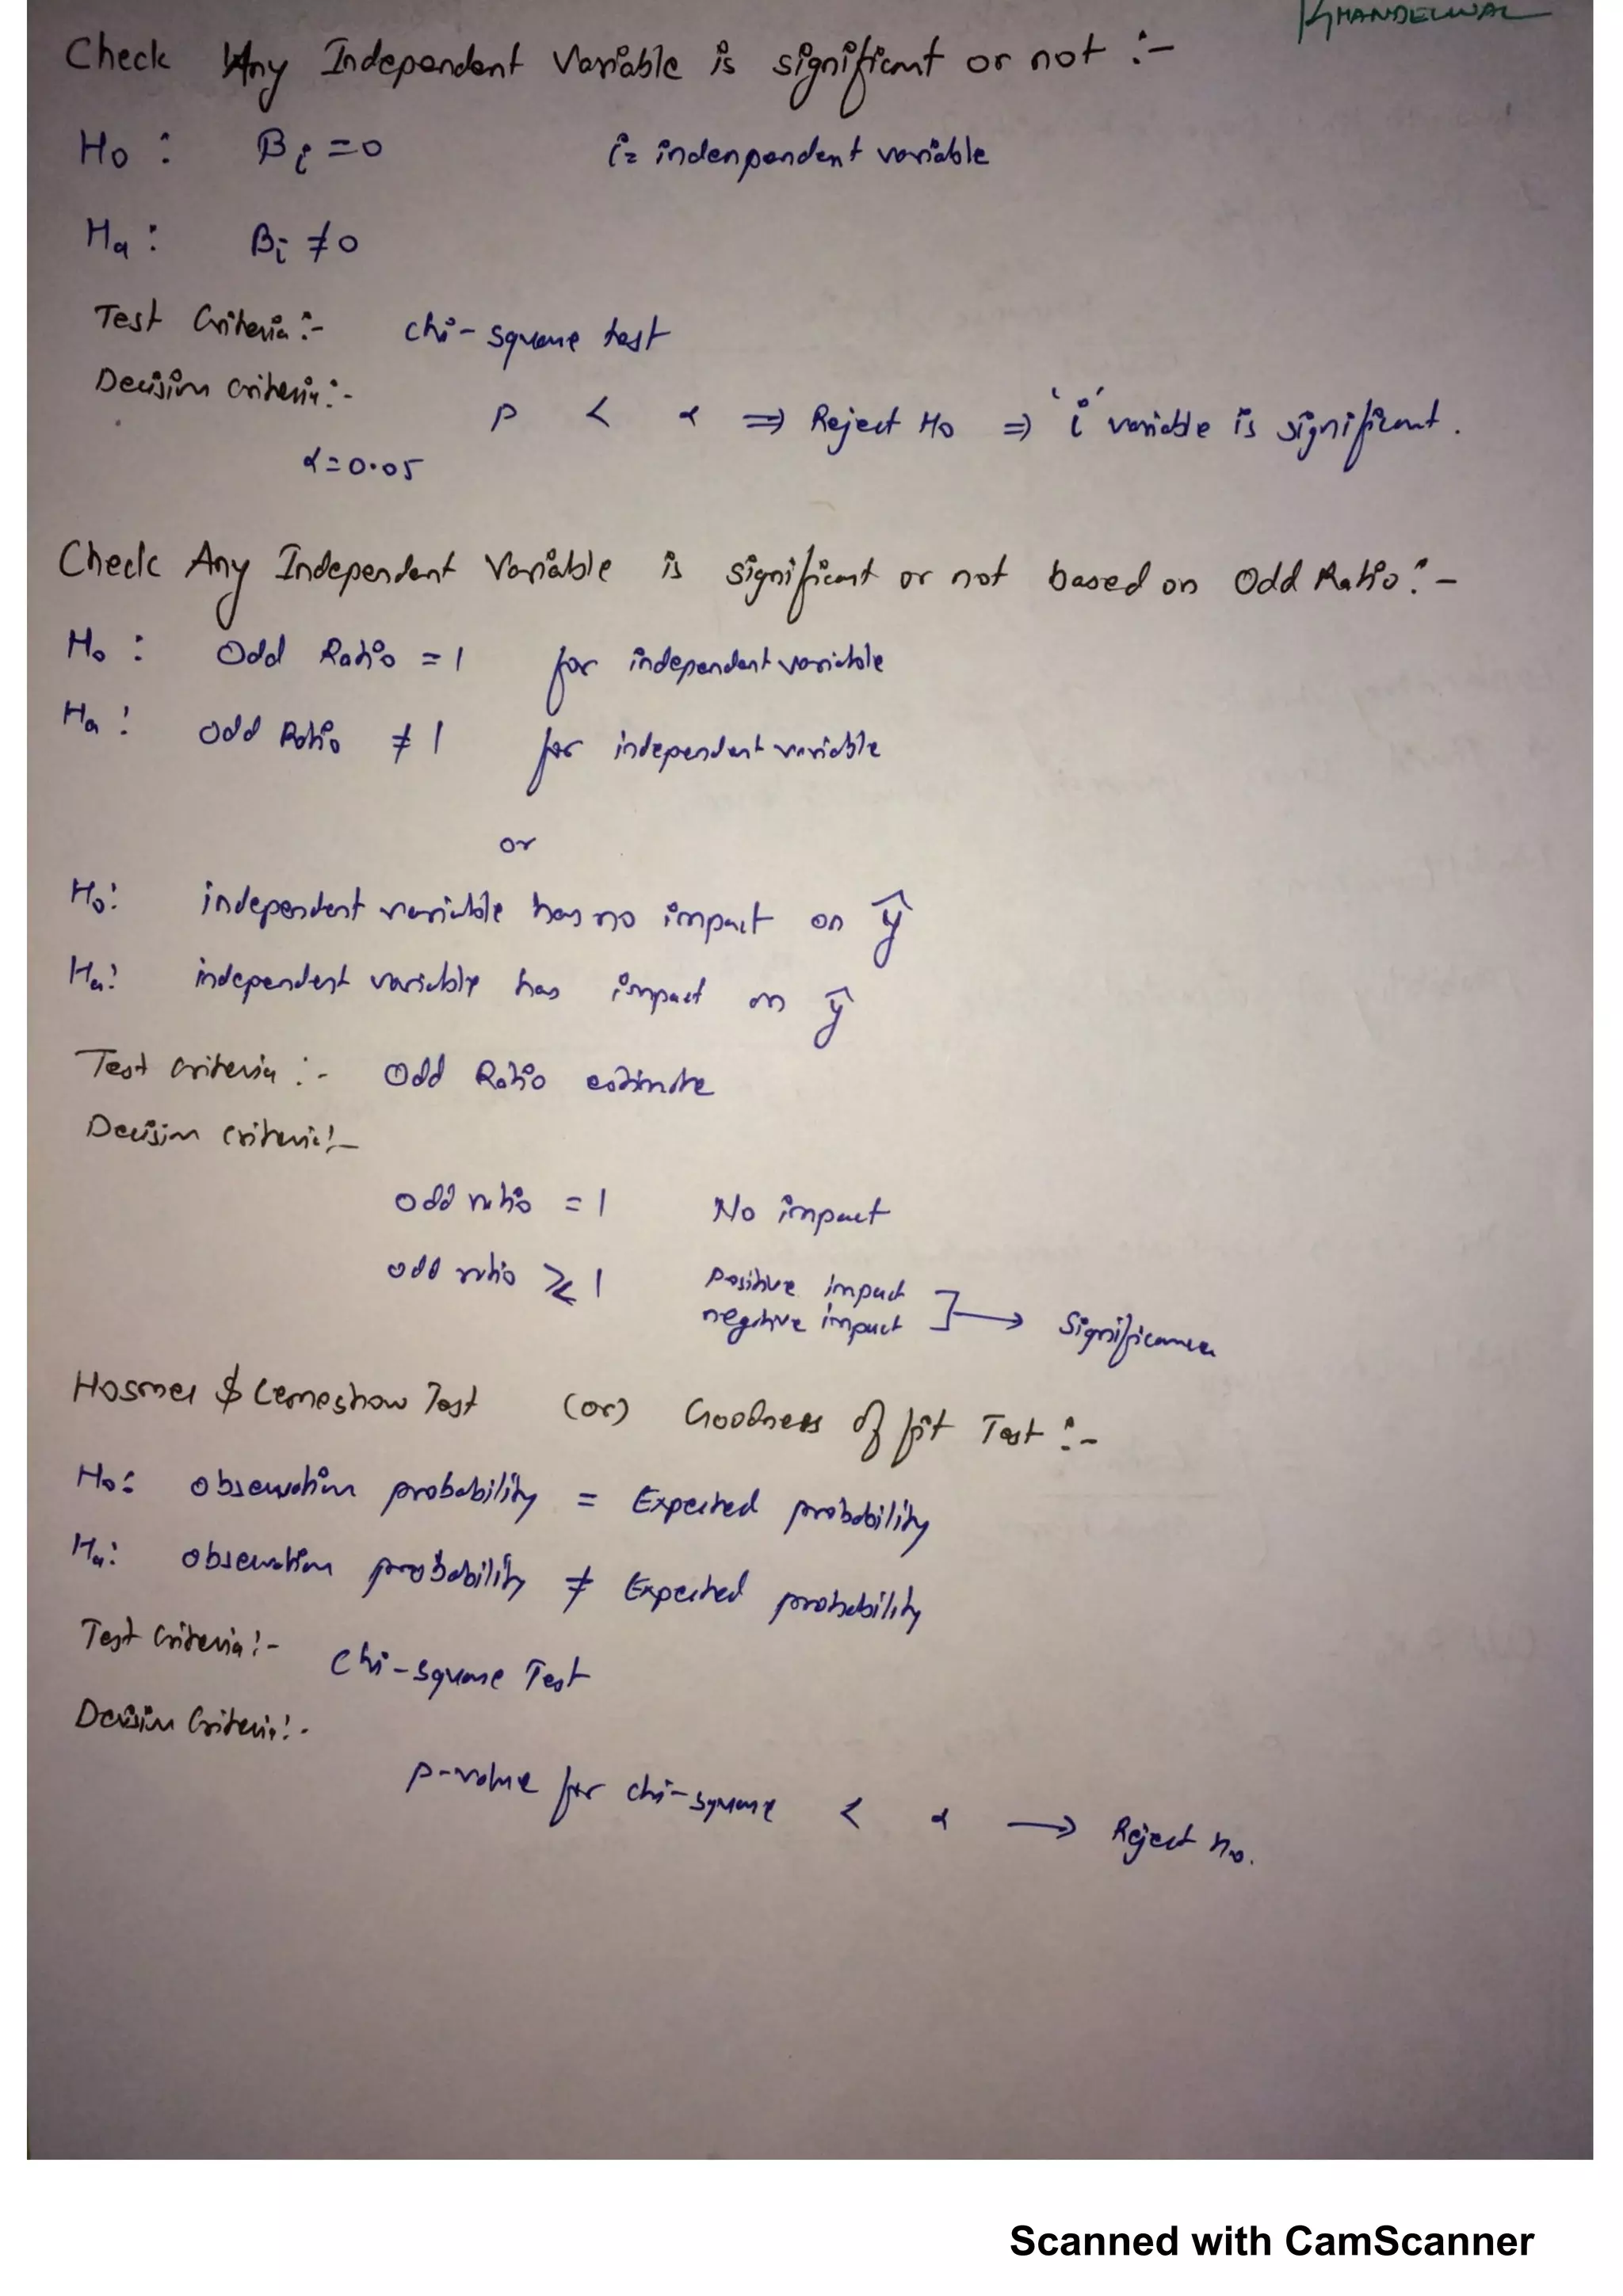 KHANDELWAL
Check Any Independent Variable is significant or not :-
H₀ : Bᵢ = 0 i = indenpendent variable
Hₐ : Bᵢ ≠ 0
Test Criteria :- chi-square test
Decision criteria :-
p < α ⇒ Reject H₀ ⇒ 'i' variable is significant.
α = 0.05
Check Any Independent Variable is significant or not based on Odd Ratio :-
H₀ : Odd Ratio = 1 for independent variable
Hₐ : Odd Ratio ≠ 1 for independent variable
or
H₀: independent variable has no impact on ŷ
Hₐ: independent variable has impact on ŷ
Test criteria :- Odd Ratio estimate
Decision criteria :-
odd ratio = 1 No impact
odd ratio ≷ 1 positive impact
negative impact ] → Significance
Hosmer & Lemeshow Test (or) Goodness of fit Test :-
H₀: observation probability = Expected probability
Hₐ: observation probability ≠ Expected probability
Test Criteria :- Chi-square Test
Decision Criteria :-
p-value for chi-square < α → Reject H₀.
Scanned with CamScanner